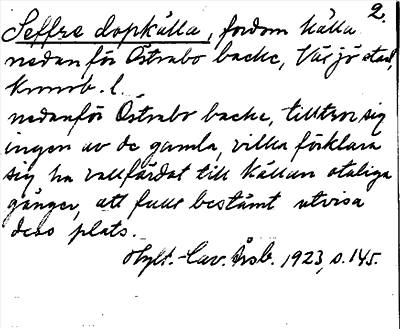 2.
Seffre dopkälla, fordom källa
nedanför Östrabo backe, Växjö stad,
Kronob. l.
nedanför Östrabo backe, tilltror sig
ingen av de gamla, vilka förklara
sig ha vallfärdat till källan otaliga
gånger, att fullt bestämt utvisa
dess plats.
Hylt.-Cav. Årsb. 1923, s. 145.